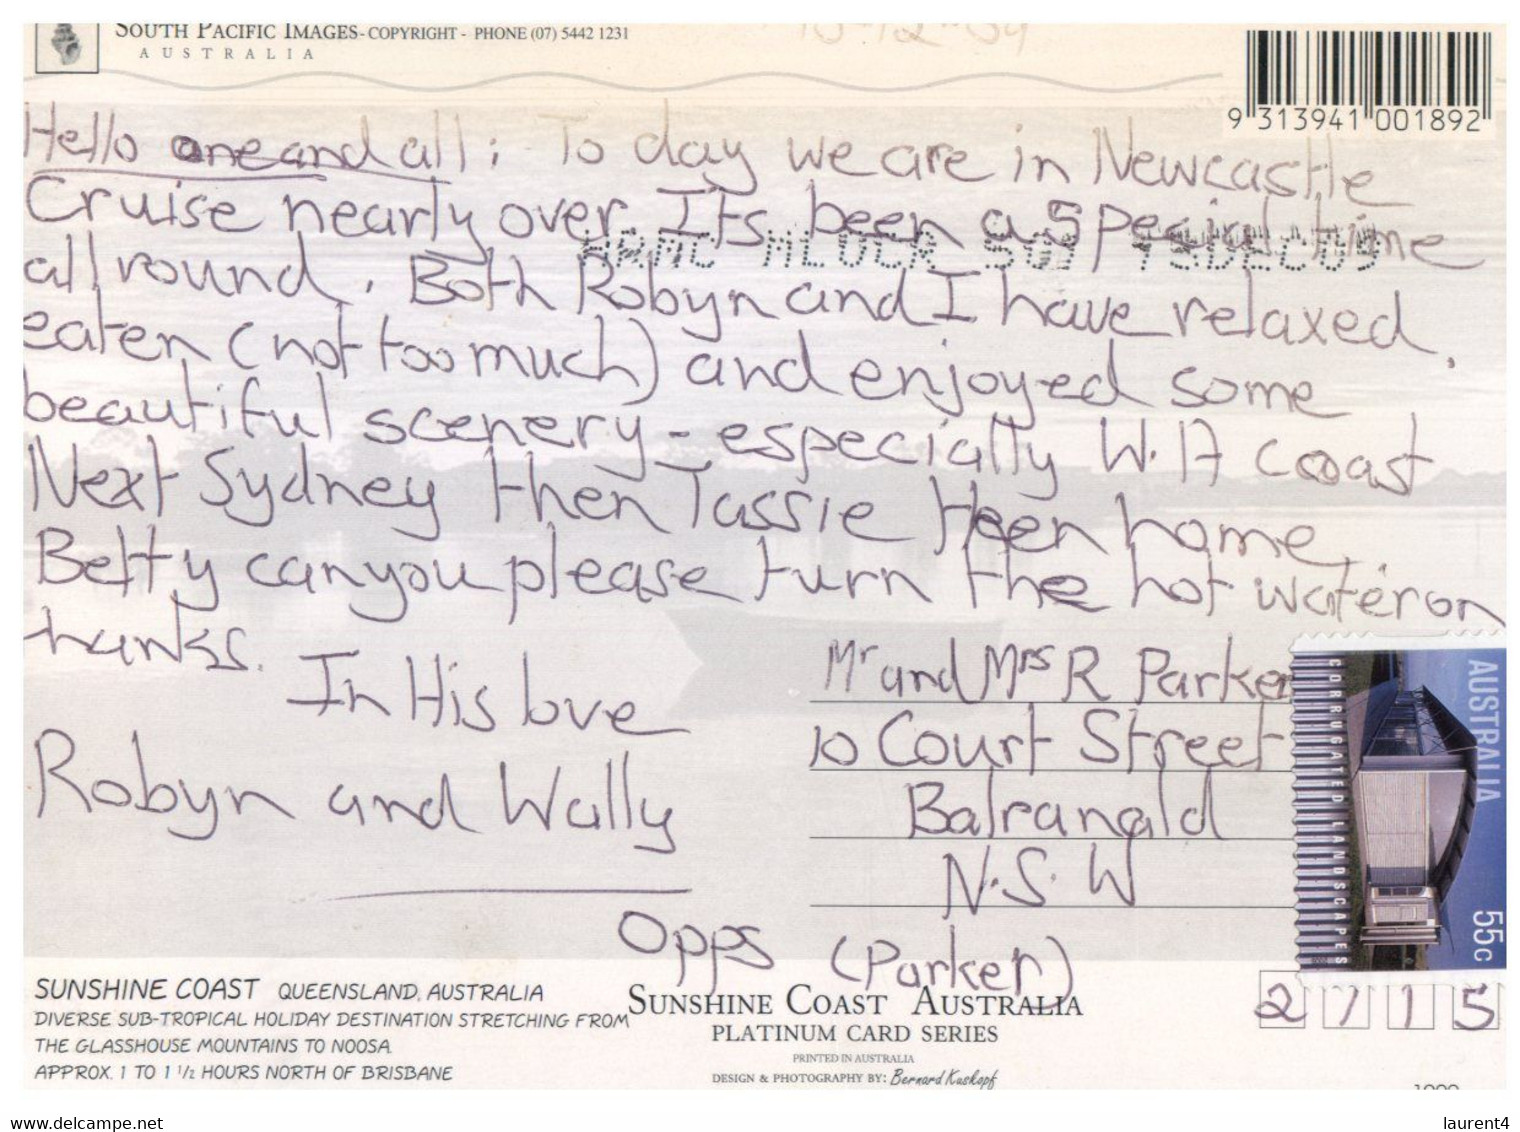 SOUTH PACIFIC IMAGES - COPYRIGHT - PHONE (07) 5442 1231
AUSTRALIA
9 313941 001892
Hello one and all; To day we are in Newcastle
Cruise nearly over Its been a special time
all round. Both Robyn and I have relaxed,
eaten (not too much) and enjoyed some
beautiful scenery - especially W.A coast
Next Sydney then Tassie then home
Betty can you please turn the hot water on
thanks.
In His love
Robyn and Wally
Mr and Mrs R Parker
10 Court Street
Balranald
N.S.W
Opps (Parker)
2715
AUSTRALIA
CORRUGATED LANDSCAPES
55c
SUNSHINE COAST QUEENSLAND, AUSTRALIA
DIVERSE SUB-TROPICAL HOLIDAY DESTINATION STRETCHING FROM
THE GLASSHOUSE MOUNTAINS TO NOOSA.
APPROX. 1 TO 1 1/2 HOURS NORTH OF BRISBANE
SUNSHINE COAST AUSTRALIA
PLATINUM CARD SERIES
PRINTED IN AUSTRALIA
DESIGN & PHOTOGRAPHY BY: Bernard Kuskopf
www.delcampe.net
laurent4